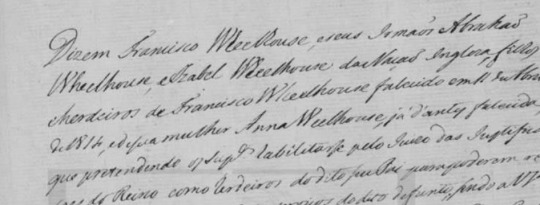 Dizem Francisco Wheelhouse, e seus Irmaõs Abrahaõ
Wheelhouse, e Izabel Wheelhouse da Naçaõ Ingleza, filhos
e herdeiros de Francisco Wheelhouse falecido em 11 de
de 1814, e de sua mulher Anna Weelhouse, já d'antes falecida,
que pretendendo os Supes. habilitarse pelo Juizo das
do Reino como Erdeiros do dito seu Pai para poderem
do dito defunto, sendo a